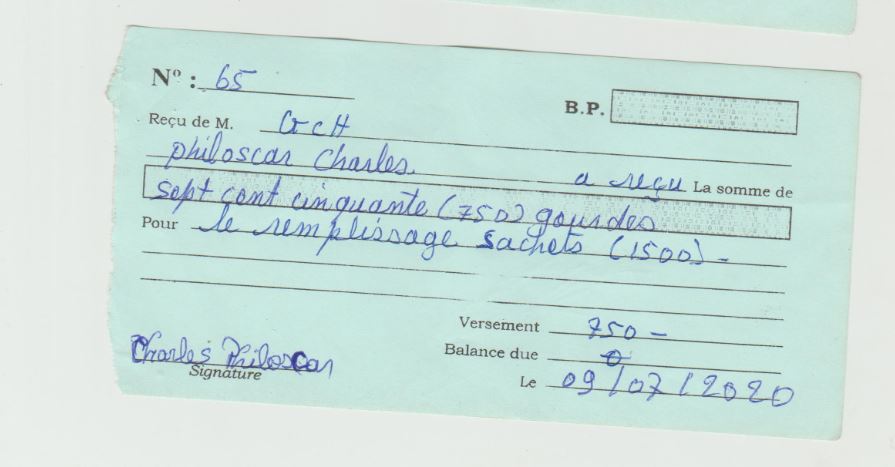 Nº : 65
B.P.
Reçu de M. GCH
philoscar Charles a reçu La somme de
sept cent cinquante (750) gourdes
Pour le remplissage sachets (1500) -
Versement 750 -
Balance due 0
Charles Philoscar
Signature
Le 09/07/2020